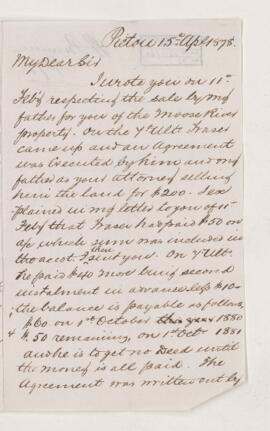 Pictou 15th Apl 1878.
My Dear Sir
I wrote you on 11th
Feby respecting the sale by my
father for you of the Moose River
property. On the 7th Ult. Fraser
came up and an Agreement
was executed by him and my
father as your attorney selling
him the land for $200. I ex
plained in my letter to you of 11th
Feby that Fraser had paid $50 on
a/c which sum was included in
the acct. I then sent you. On 7th Ult.
he paid $40 more being second
instalment in advance less $10 -
the balance is payable as follows,
$60 on 1st October 1880
& $50 remaining, on 1st Oct. 1881
and he is to get no Deed until
the money is all paid. The
Agreement was written out by